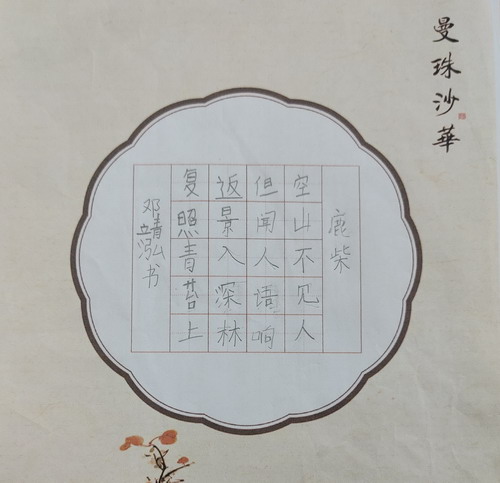 曼珠沙華
鹿柴
空山不见人
但闻人语响
返景入深林
复照青苔上
邓靖泓书